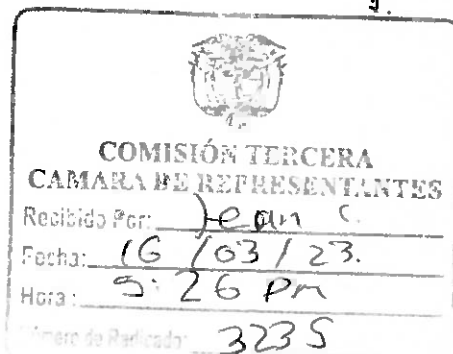 COMISIÓN TERCERA
CAMARA DE REPRESENTANTES
Recibido Por: Jean C.
Fecha: 16 /03/ 23.
Hora: 5:26 Pm
Número de Radicado: 3235